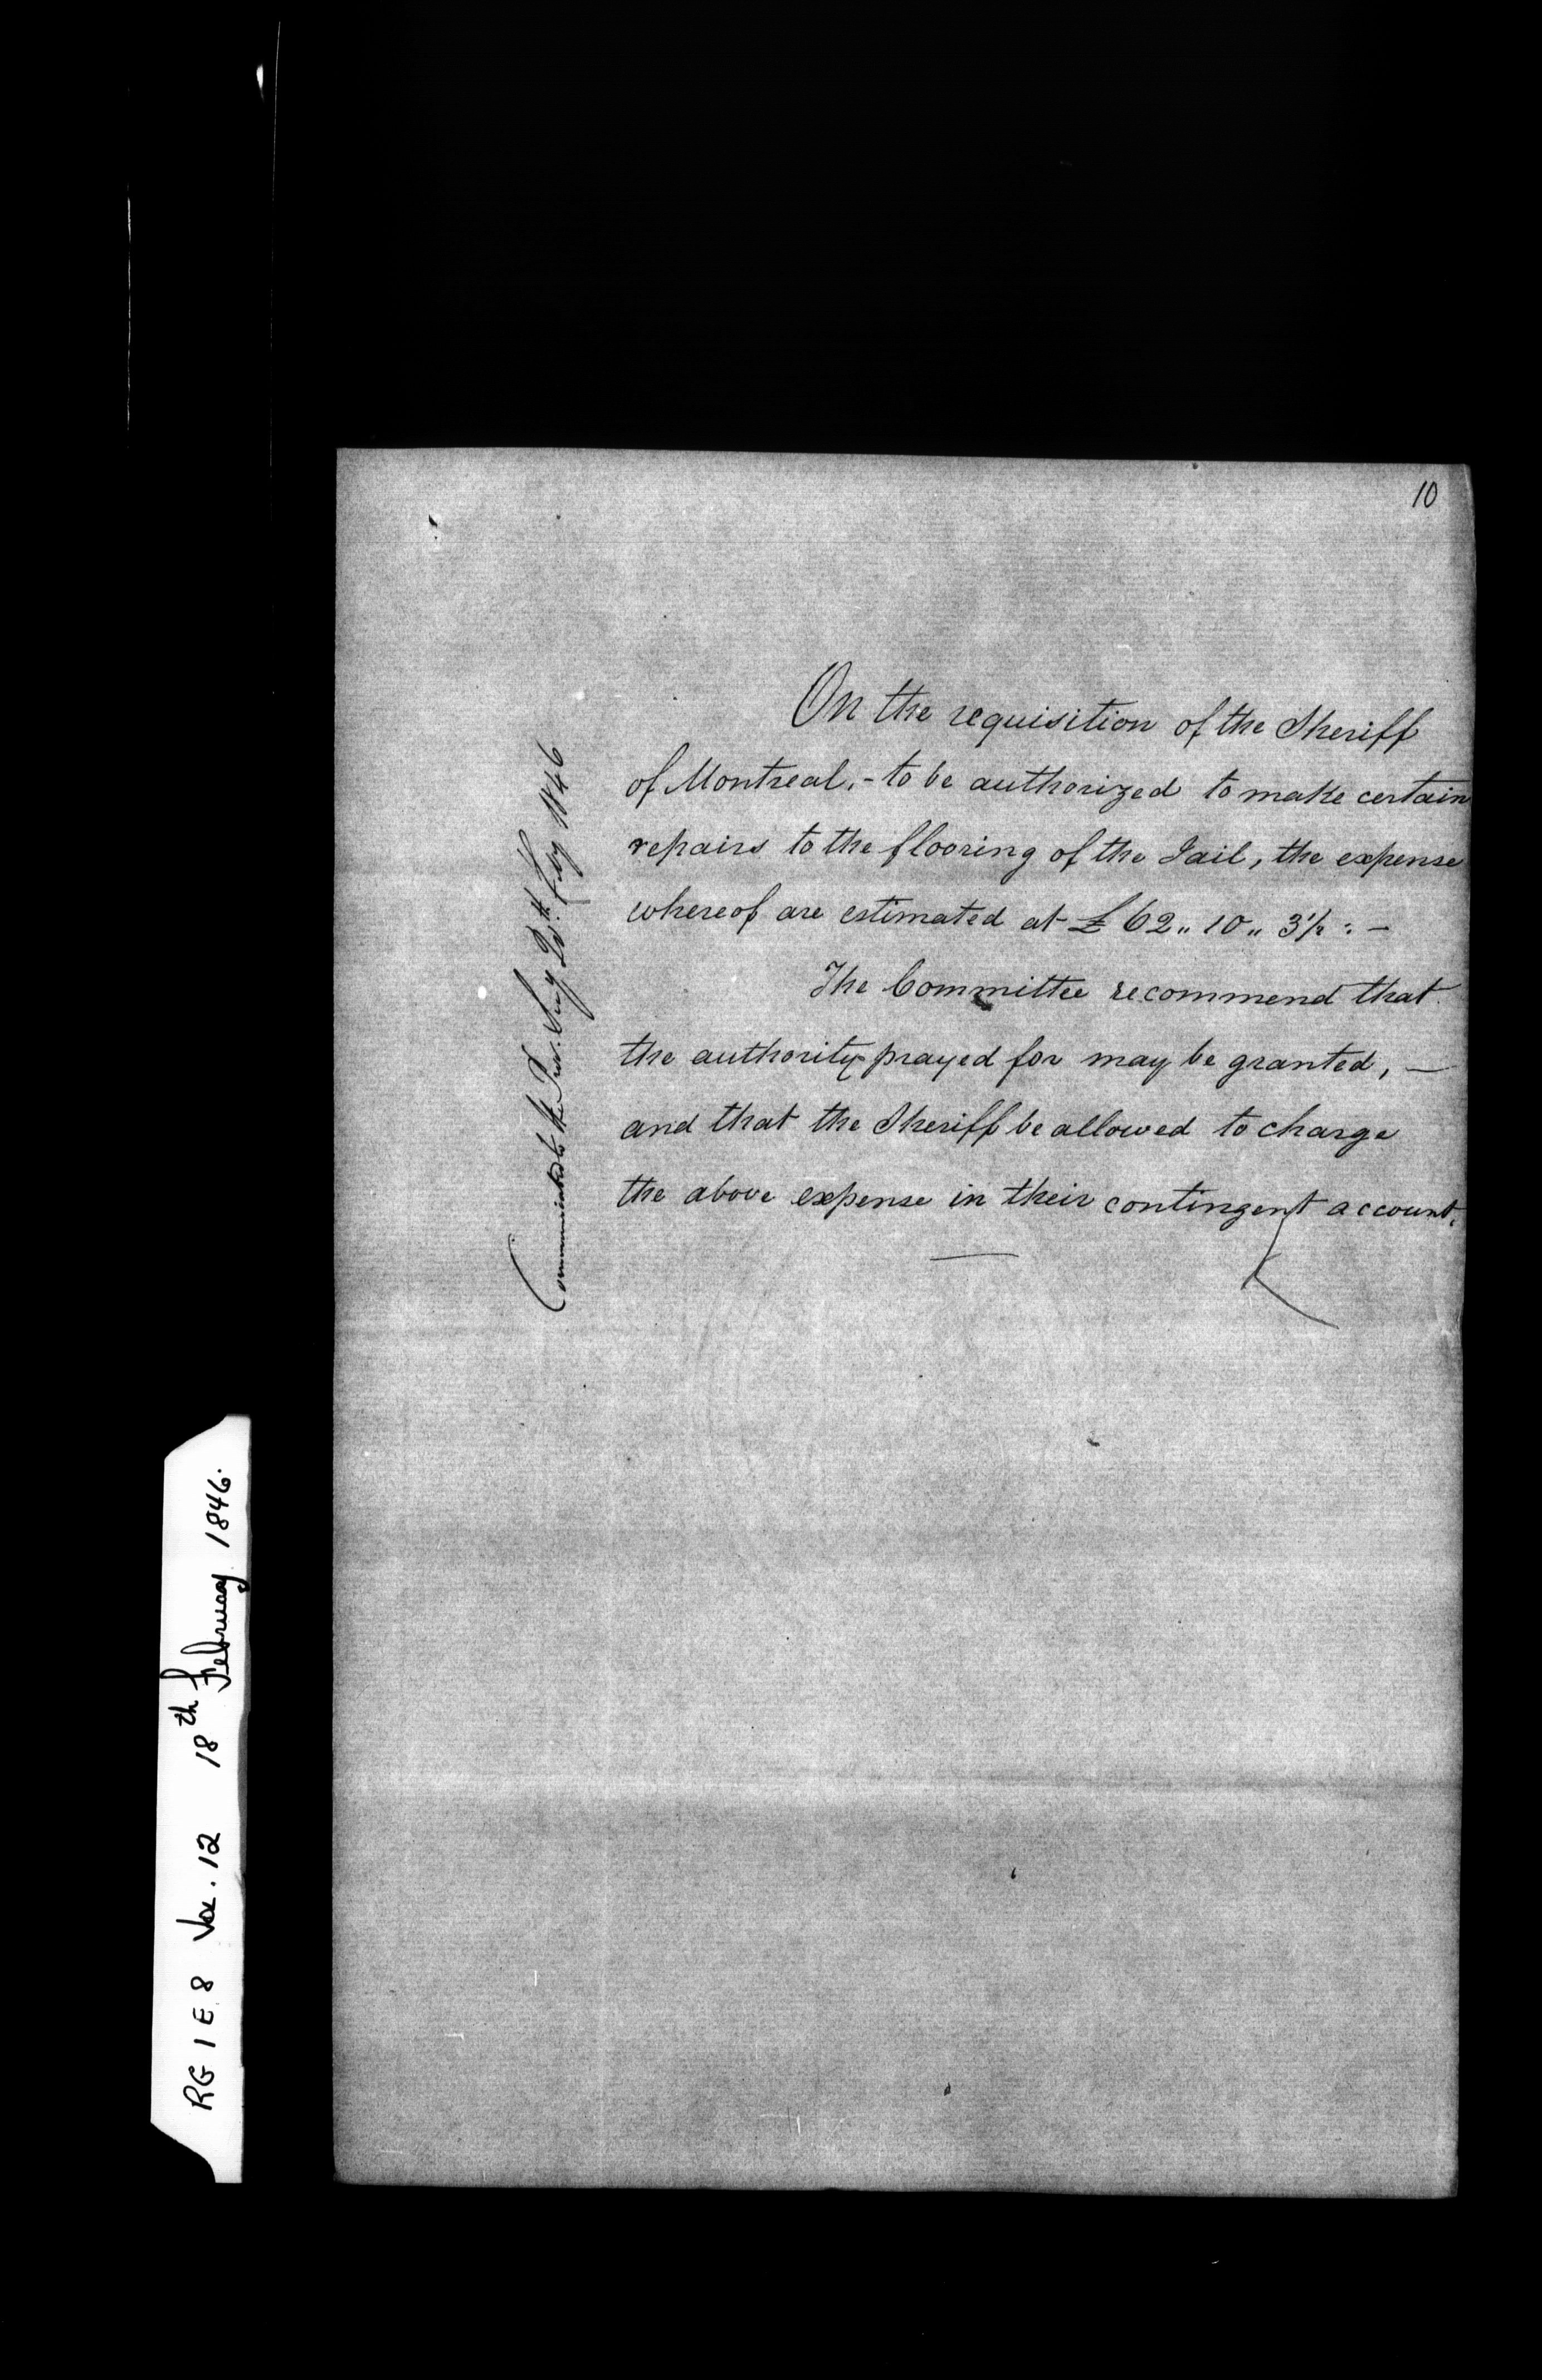 10
On the requisition of the Sheriff
of Montreal, - to be authorized to make certain
repairs to the flooring of the Jail, the expense
whereof are estimated at £ 62 „ 10 „ 3½ : -
The Committee recommend that
the authority prayed for may be granted, —
and that the Sheriff be allowed to charge
the above expense in their contingent account.
Communicated to the Prov. Secy 20th Feby 1846
RG 1 E 8 Vol. 12 18th February 1846.